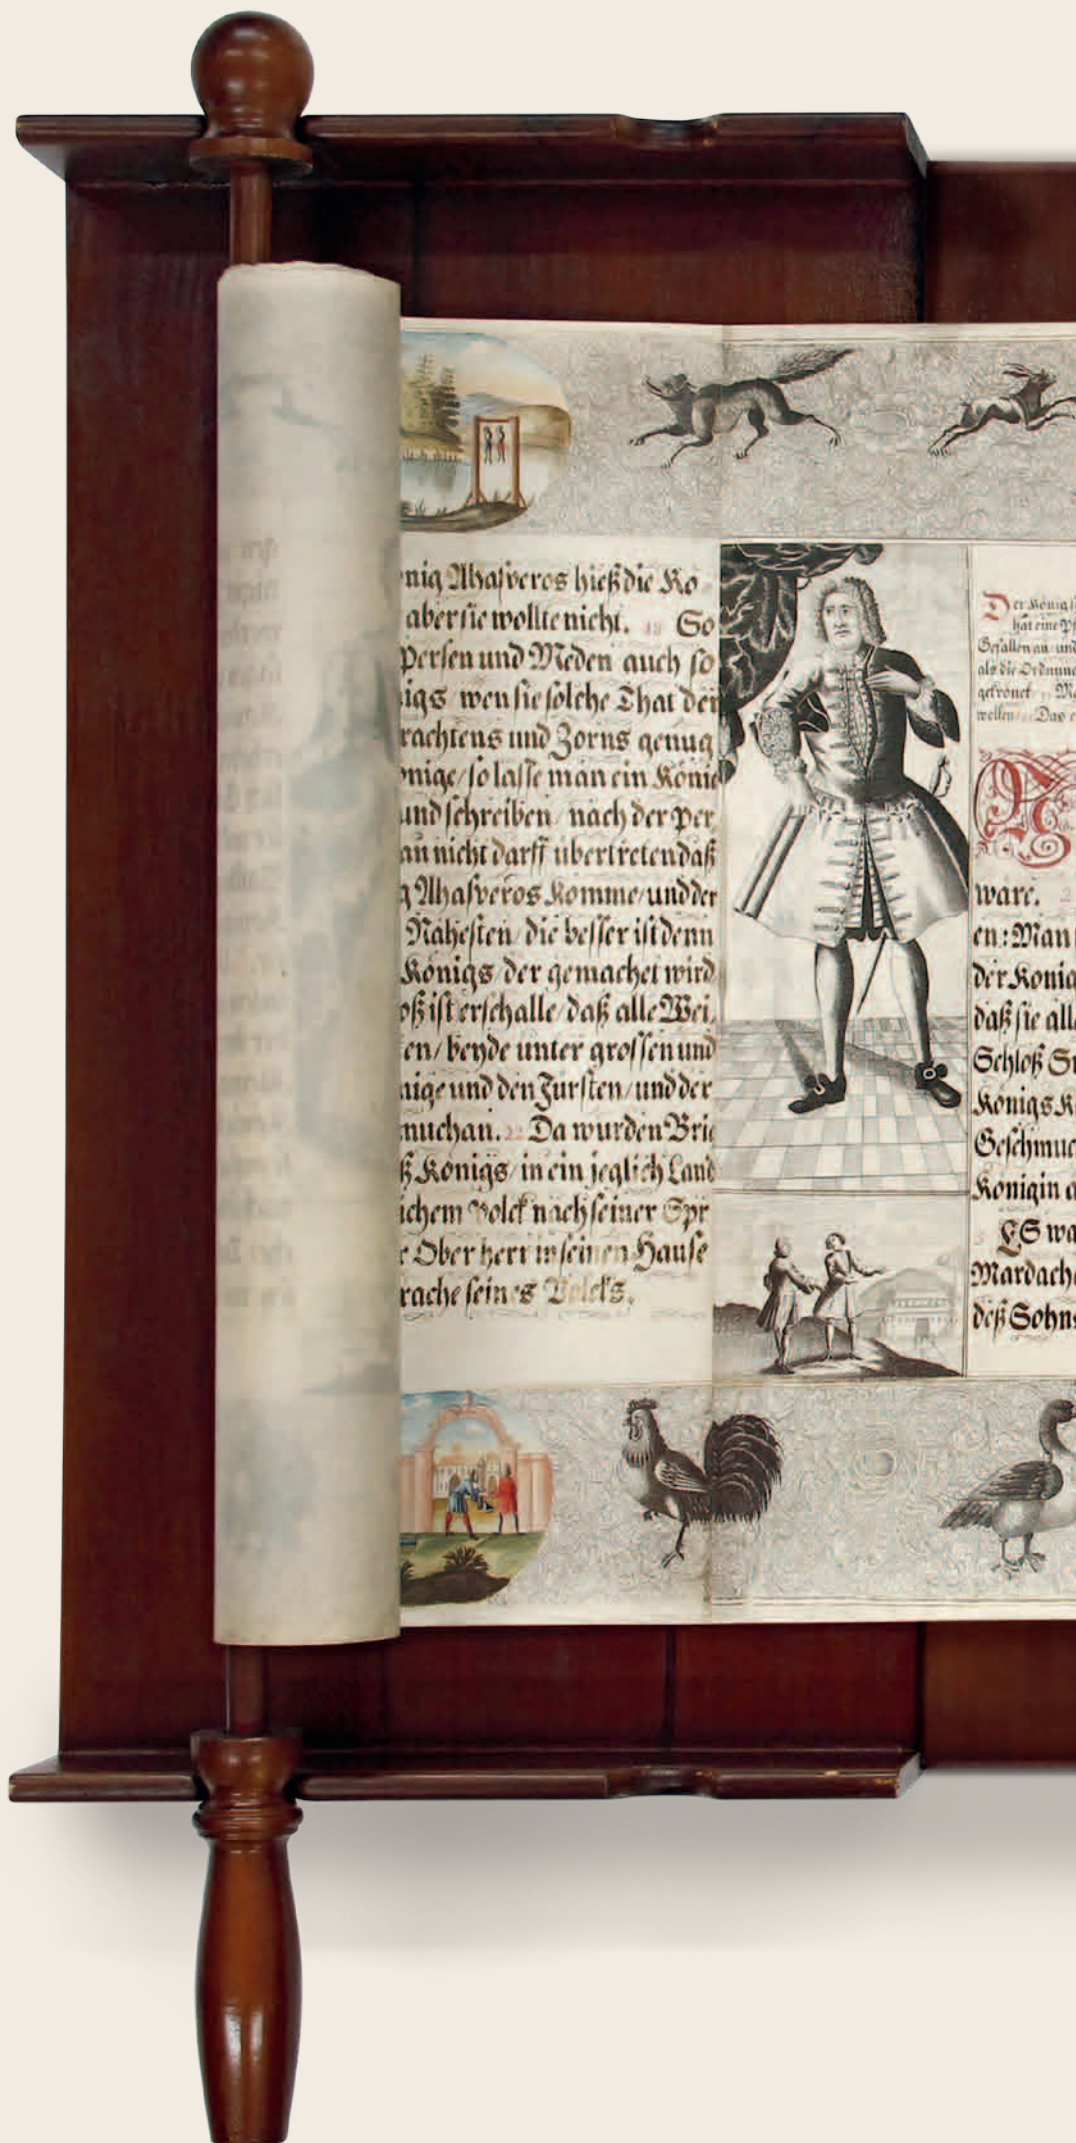 nig Ahasveros hieß die Ko
aber sie wollte nicht. So
Persen und Meden auch so
igs wen sie solche That der
rachtens und Zorns genug
nige/ so lasse man ein Konig
und schreiben/ nach der Per
an nicht darff ubertreten daß
g Ahasveros Komme/ und der
Nähesten/ die besser ist denn
Konigs der gemachet wird
oß ist erschalle/ daß alle Wei
en/ beyde unter grossen und
nige und den Fürsten/ und der
muchan. 22 Da wurden Brie
ß Konigs/ in ein jeglich Land
ichem Volck nach seiner Spr
r Ober herr in seinen Hause
rache seines Volcks.
Der König
hat eine
Gefallen an und
als die Ordnung
gekrönet
wollen Das
N
ware.
en: Man
der Konig
daß sie alle
Schloß Su
Konigs K
Geschmuck
Konigin a
ES wa
Mardache
deß Sohns